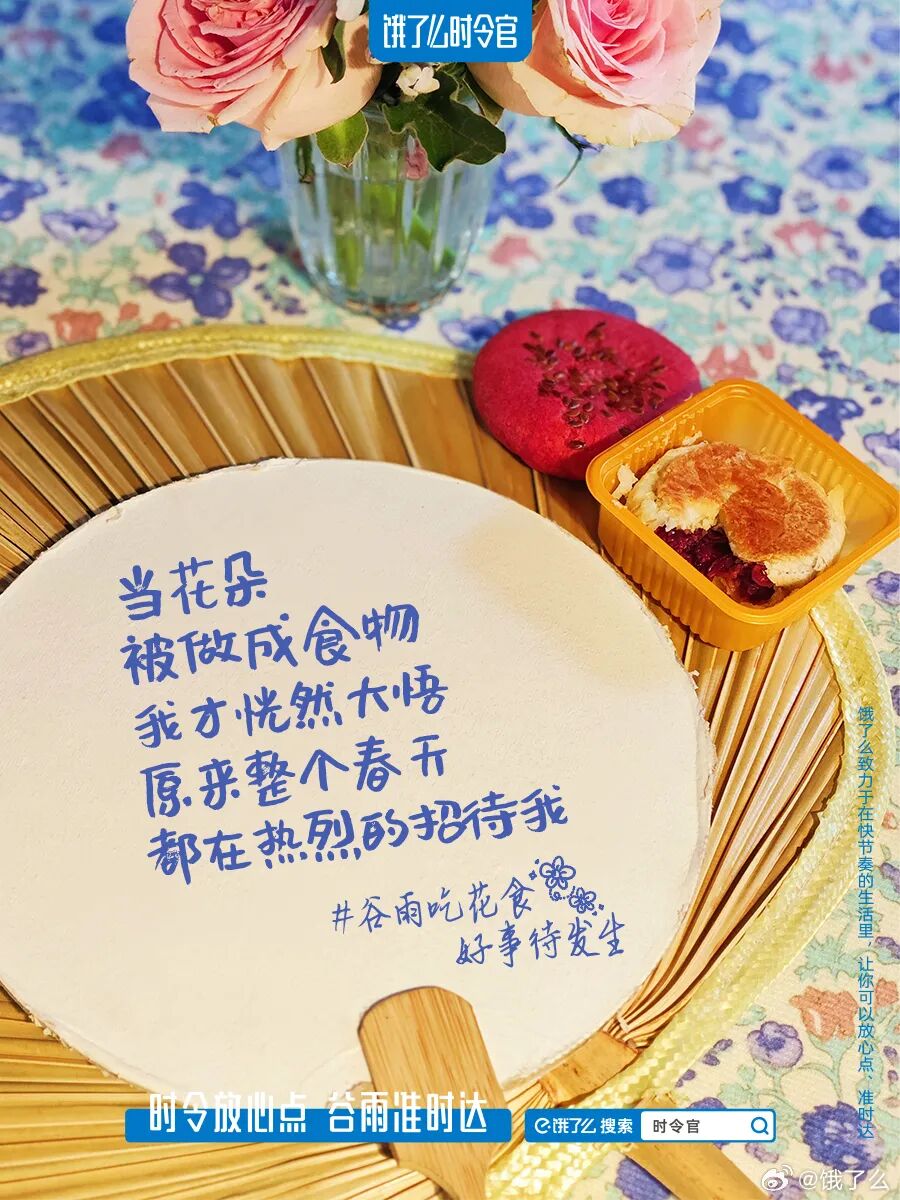 饿了么时令官
当花朵
被做成食物
我才恍然大悟
原来整个春天
都在热烈的招待我
#谷雨吃花食
好事待发生
饿了么致力于在快节奏的生活里，让你可以放心点、准时达
时令放心点 谷雨准时达
饿了么 搜索 时令官
@饿了么